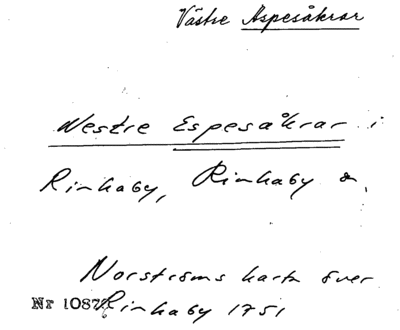 Västre Aspesåkrar
Westre Espesåkrar i
Rinkaby, Rinkaby sn,
Norströms karta över
Nr 1087 Rinkaby 1751